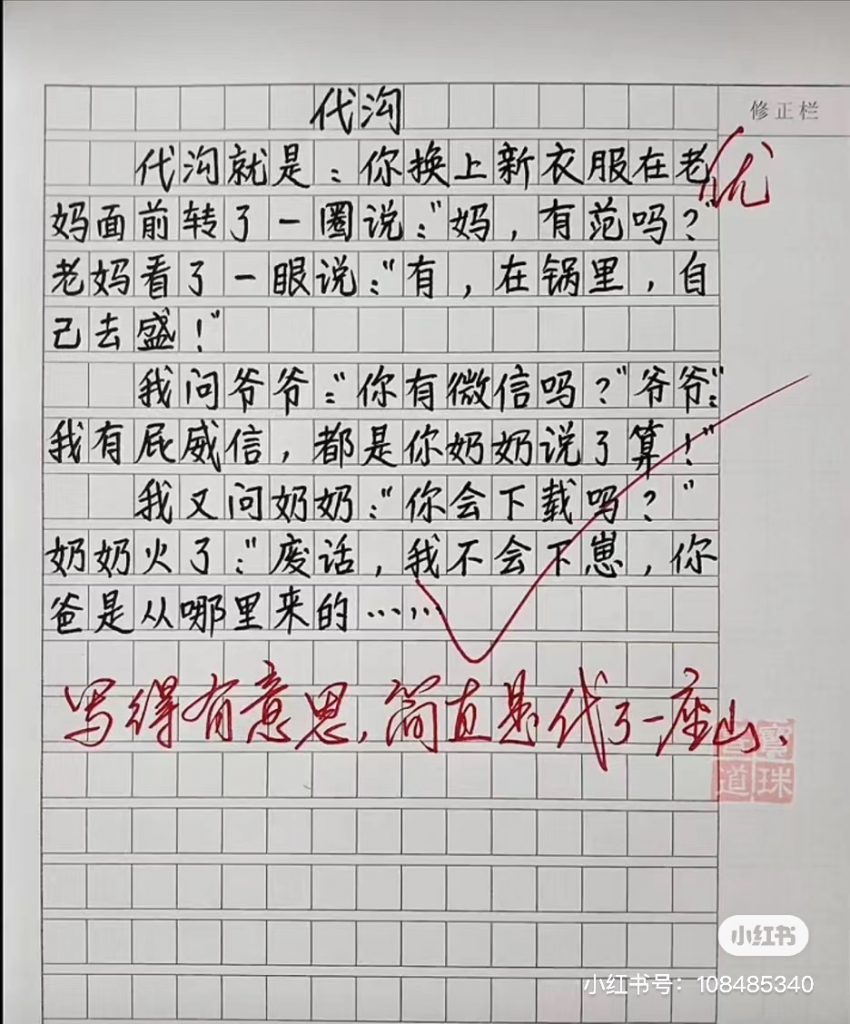 代沟
修正栏
代沟就是：你换上新衣服在老
优
妈面前转了一圈说：“妈，有范吗？”
老妈看了一眼说：“有，在锅里，自
己去盛！”
我问爷爷：“你有微信吗？”爷爷：“
我有屁威信，都是你奶奶说了算！”
我又问奶奶：“你会下载吗？”
奶奶火了：“废话，我不会下崽，你
爸是从哪里来的……
写得有意思，简直是代了一座山、
道珠
小红书
小红书号：108485340